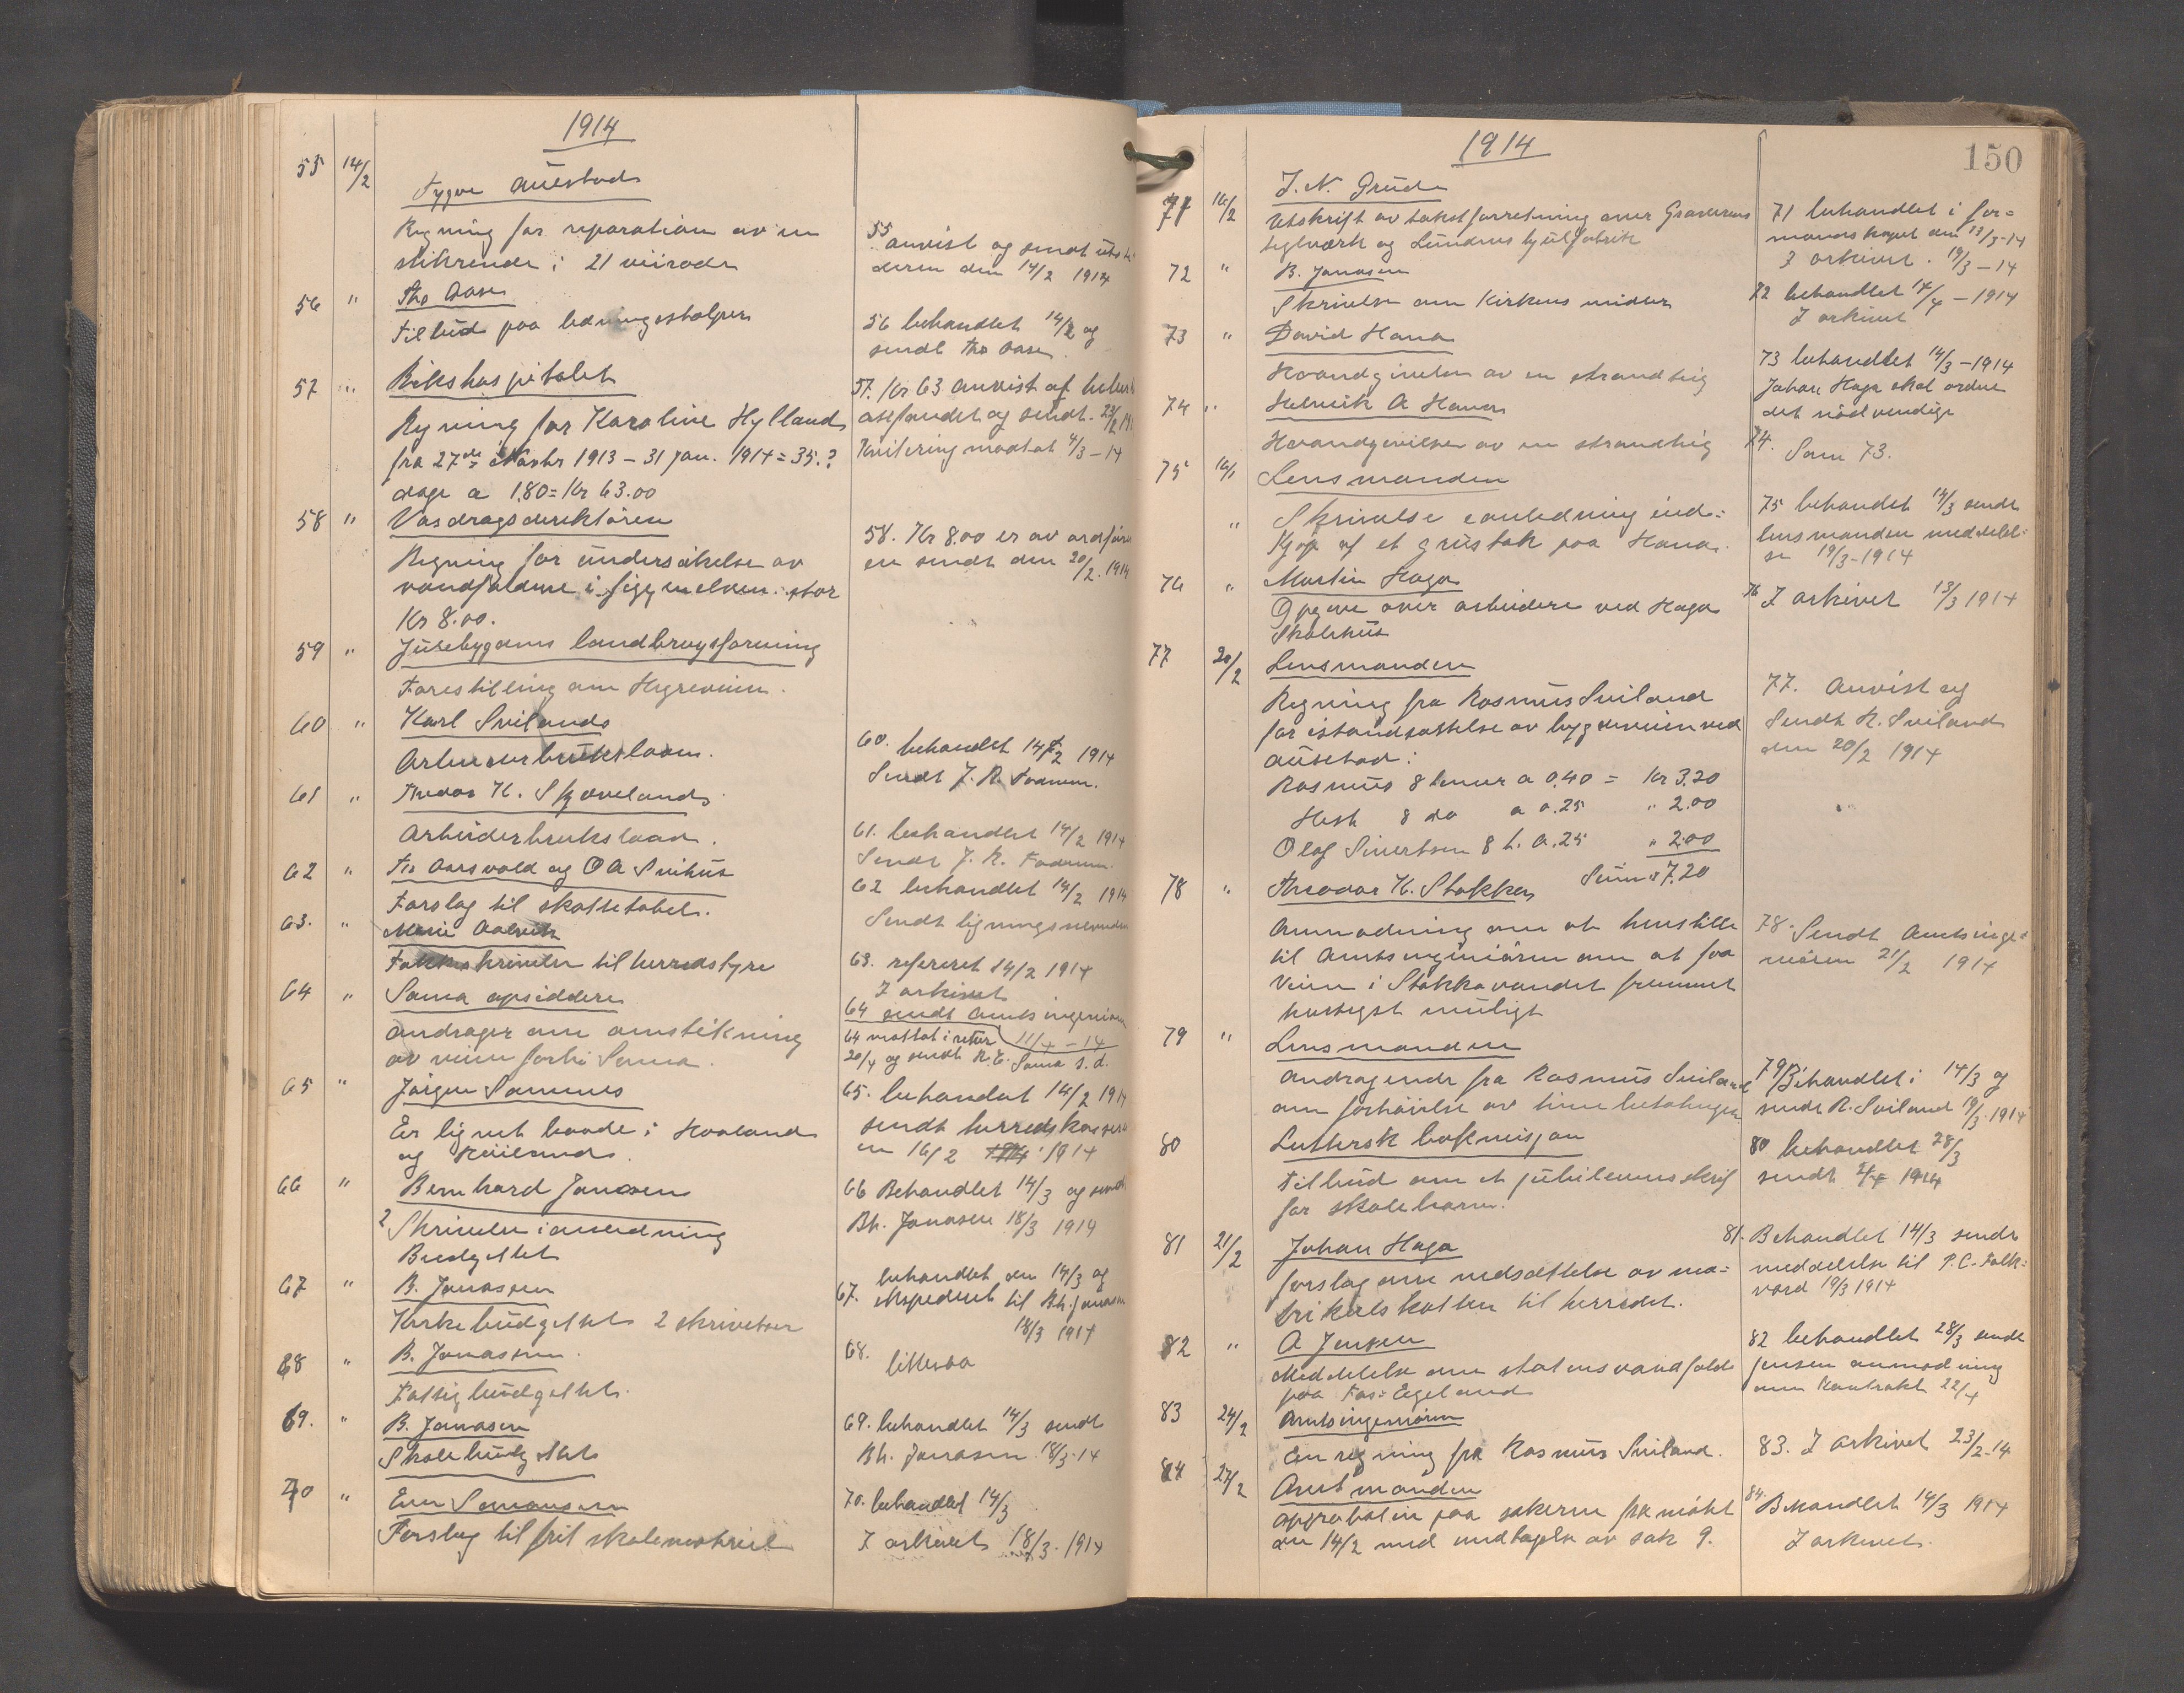 1914
55 14/2 Tygve Auestad
Regning for reparation av en
stikrende i 21 veirode
55 anvist og sendt
deren den 14/2 1914
56 " Tho Aase
Tilbud paa ledningsstolper
56 behandlet 14/2 og
sendt Tho Aase.
57 " Rikshospitalet
Regning for Karoline Hylland
fra 27de Novbr 1913 – 31 Jan. 1914 = 35.?
dage a 1.80 = Kr 63.00
57. Kr 63 anvist af
og sendt. 23/2
Kvitering mottat 4/3 – 14
58 " Vasdragsdirektören
Regning for undersökelse av
vandfaldene i Figgenelven. stor
Kr 8.00.
58. Kr 8.00 er av ordföre
en sendt den 20/2. 1914
59 " landbrugsforening
Forestilling om Hegreveien.
60 " Karl Sviland
Arbeiderbrukslaan.
60. behandlet 14/2 1914
Sendt J. R. Fodnem.
61 " Tredor K. Skjæveland
Arbeiderbrukslaan.
61. behandlet 14/2 1914
Sendt J. R. Fodnem.
62 " Ts Aarsvold og O A Svihus
Forslag til skattetabel.
62 behandlet 14/2 1914
Sendt ligningsnevnden
63. " Marie
Takkeskrivelse til herredstyre
63. refereret 14/2 1914
I arkivet
64 " Soma opsiddere
andrager om omstikning
av veien forbi Soma.
64 sendt Amtsingeniören
11/4 – 14
64 mottat i retur
20/4 og sendt R. E. Soma s.d.
65 " Jörgen Sammes
Er lignet baade i Haaland
og Höiland.
65. behandlet 14/2 1914
sendt herredskasser
en 16/2 1914
66 " Bernhard Jonasen
2 Skrivelser i anledning
Budgettet
66 Behandlet 14/3 og sendt
Bh. Jonasen 18/3 1914
67 " B. Jonassen
Kirkebudgettet 2 skrivelser
67. behandlet den 14/3 og
ekspedert til Bh. Jonasen
18/3 1914
68 " B. Jonassen.
Fattigbudgettet.
68. litlesaa
69. " B. Jonasen
Skolebudgettet
69. behandlet 14/3 sendt
Bh. Jonasen 18/3-14
70 " Enn Somansen
Forslag til frit skolematriel
70. behandlet 14/3
I arkivet 18/3. 1914
1914
150
71 16/2 J. N. Grude
Utskrift av takstforretning over Graverens
teglværk og Lundens hjulfabrik
71 behandlet i for=
mandskapet den 13/3-14
I arkivet. 19/3 – 14
72 " B. Jonasen
Skrivelse om Kirkens midler
72 behandlet 14/4 – 1914
I arkivet
73 " David Hana
Haandgivelse av en strandteig
73 behandlet 14/3 – 1914
Johan Haga skal ordne
det nödvendige
74 " Helmik A Hana
Haandgivelse av en strandteig
74. Som 73.
75 16/2 Lensmanden
" Skrivelse i anledning ind=
kjöp af et grustak paa Hana.
75 behandlet 14/3 sendt
lensmanden meddelel=
se 19/3-1914
76 " Martin Haga
Opgave over arbeidere ved Haga
Skolehus
76 I arkivet 13/3 1914
77 20/2 Lensmanden
Regning fra Rasmus Sviland
for istandsættelse av bygdeveien ved
Auestad:
Rasmus 8 timer a 0,40 = Kr 3.20
Hest 8 do a 0.25 " 2.00
Olaf Sivertsen 8 t. a .25 " 2.00
Sum 7,20
77. Anvist og
Sendt R. Sviland
den 20/2 1914
78 " Theodor K. Stokken
Anmodning om at henstille
til Amtsingeniören om at faa
Veien i Stokkavandet fremmet
hurtigst muligt
78. Sendt Amtsinge=
niören 21/2 1914
79 " Lensmanden
Andragende fra Rasmus Sviland
om forhöielse av time betalingen
79 Behandlet i 14/3 og
sendt R. Sviland 19/3. 1914
80 Luthersk bokmisjon
Tilbud om et jubileumsskrift
for skolebarn.
80 behandlet 28/3
sendt 2/4 1914
81 21/2 Johan Haga
forslag om nedsættelse av ma=
trikelskatten til herredet.
81. Behandlet 14/3 sendt
meddelelse til P. C. Folk=
vord 19/3 1914
82 " A Jensen
Meddelelse om statens vandfald
paa Fos-Egeland
82 behandlet 28/3 sendt
Jensen anmodning
om Kontrakt 22/4
83 24/2 Amtsingeniören
En regning fra Rasmus Sviland.
83. I arkivet 23/2-14
84 27/2 Amtmanden
approbation paa sakerne fra mötet
den 14/2 med undtagelse av sak 9.
84. Behandlet 14/3 1914
I arkivet.